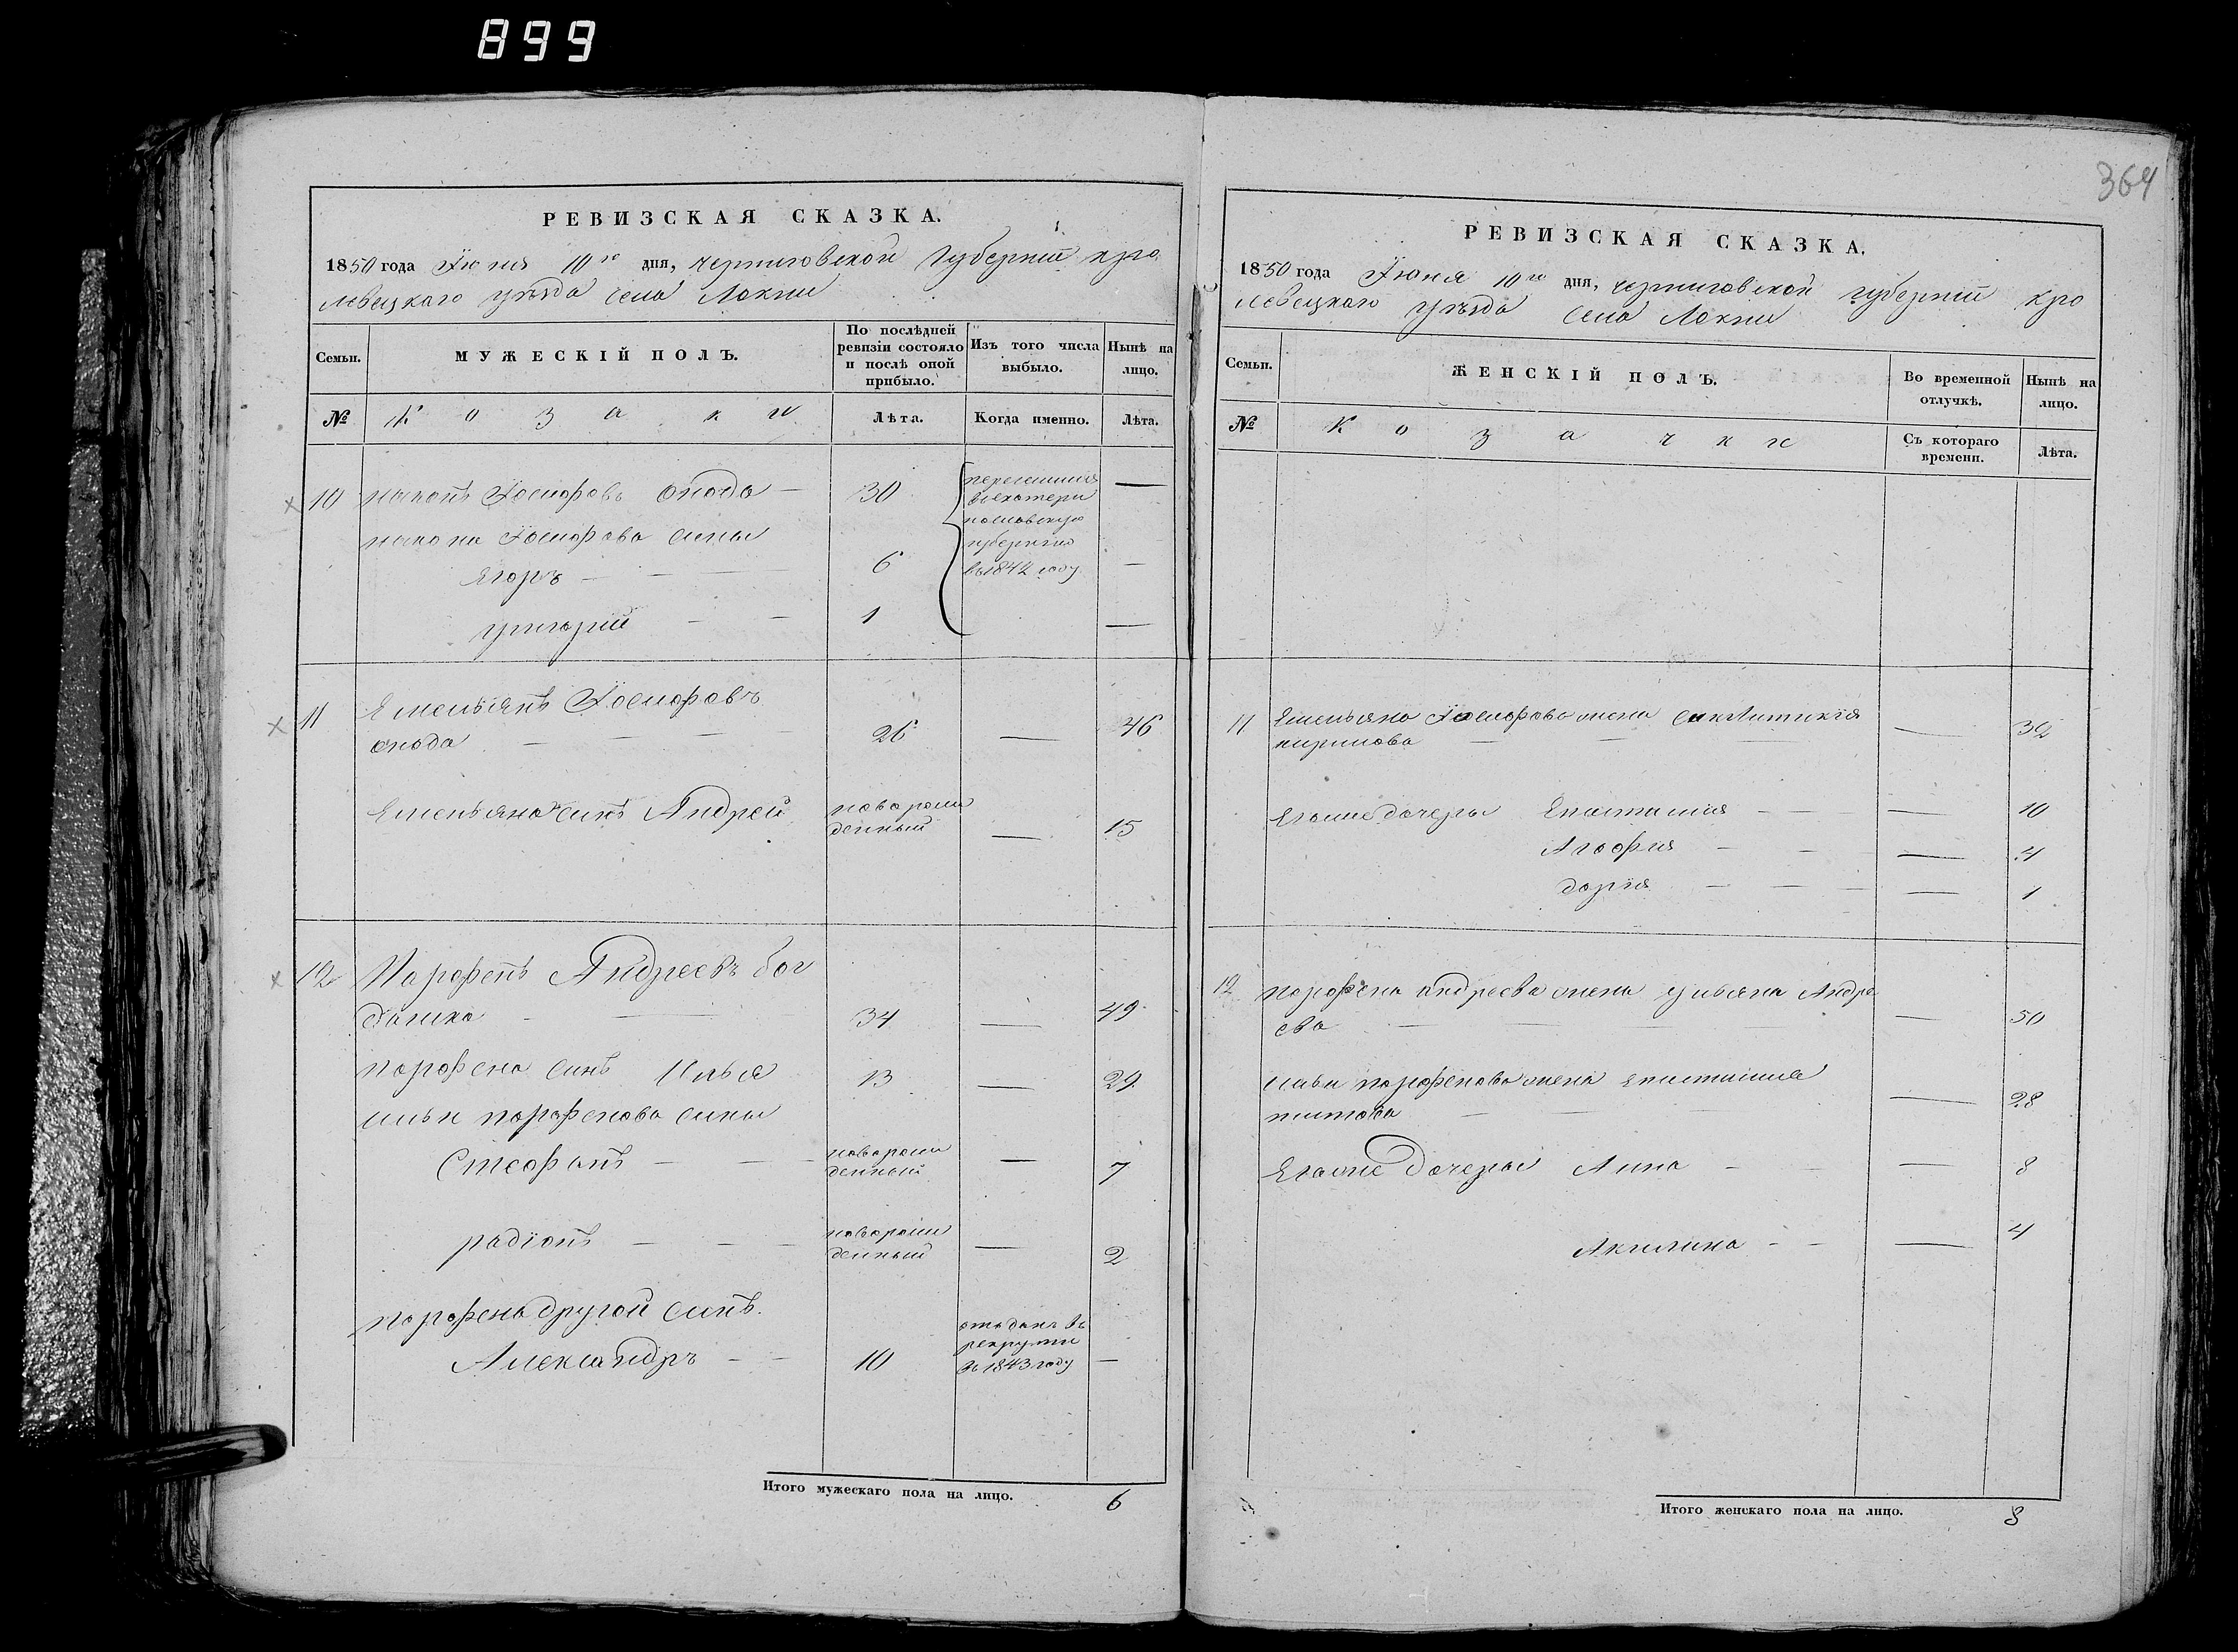 899
364
РЕВИЗСКАЯ СКАЗКА.
1850 года Іюня 10го дня, черниговской Губерніи кро
левецкаго уѣзда села Локни
Семьи.
МУЖЕСКІЙ ПОЛЪ.
По послѣдней ревизіи состояло и послѣ оной прибыло.
Изъ того числа выбыло.
Нынѣ на лицо.
№
Козаки
Лѣта.
Когда именно.
Лѣта.
10 Іосифовъ 30 —
переселился
въ екатери
нославскую
губернію
въ 1842 году
Іосифова сины
Ягоръ — 6 —
григорій — 1 —
11 Емельянъ Іосифовъ
26 — 46
Емельяна синъ Андрей
новорож
денный — 15
12 Парфенъ Андреевъ бог
данко — 34 — 49
парфена синъ Илья 13 — 29
ильи парфенова сины
Стефанъ — новорож
денный — 7
радіонъ — новорож
денный — 2
парфена другой синъ
Александръ — 10 —
отъданъ въ
рекруты
въ 1843 году
Итого мужескаго пола на лицо. 6
РЕВИЗСКАЯ СКАЗКА.
1850 года Іюня 10го дня, черниговской губерніи кро
левецкаго уѣзда села Локни
Семьи.
ЖЕНСКІЙ ПОЛЪ.
Во временной отлучкѣ.
Нынѣ на лицо.
№
Козачки
Съ котораго времени.
Лѣта.
11 Емельяна Іосифова жена
— 39
Егоже дочеры Епистимия — 10
Агафия — 4
дарія — 1
12 парфена андреева жена ульяна Андре
ева — 50
ильи парфенова жена епистимия
титова — 28
Егоже дочеры Анна — 8
Акилина — 4
Итого женскаго пола на лицо. 8